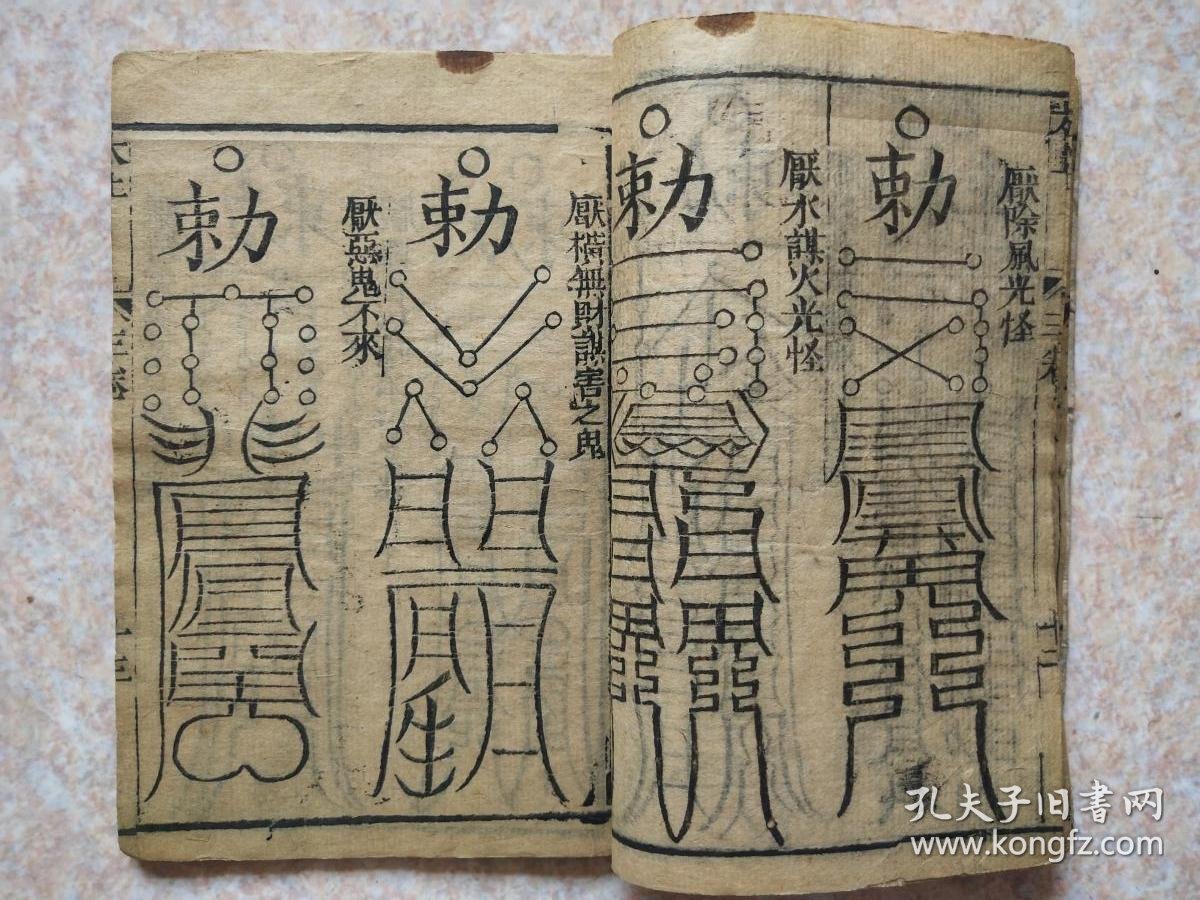 厭除風光怪
勅
厭水謀火光怪
勅
厭橫無財謀害之鬼
勅
厭惡鬼不來
勅
三卷
十二
三卷
孔夫子旧書网
www.kongfz.com